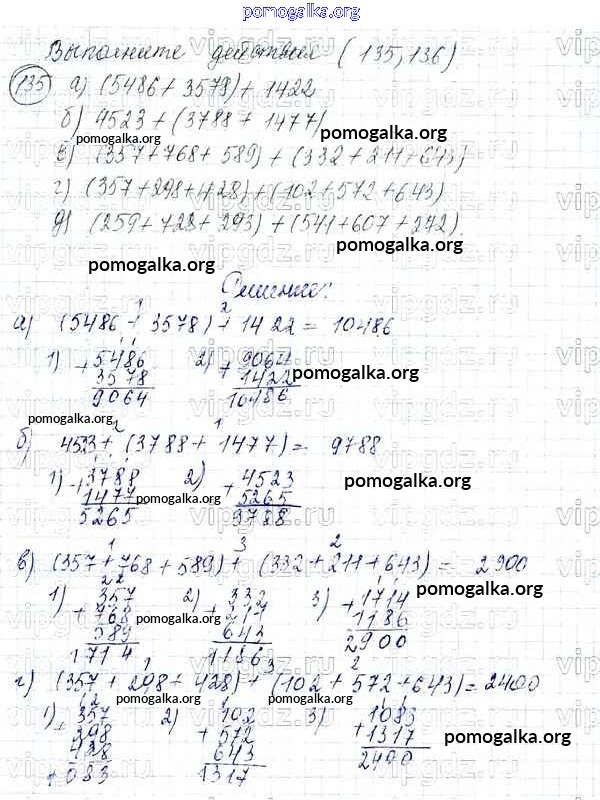 pomogalka.org
Выполните действия (135,136)
135 а) (5486+3579)+1422
б) 4523+(3788+1477)
pomogalka.org
pomogalka.org
в) (357+768+589)+(332+211+643)
г) (357+298+428)+(102+572+643)
д) (259+728+293)+(541+607+242).
pomogalka.org
pomogalka.org
Решение:
1 2
а) (5486+3578)+1422=10486
1) +5486 2) +9064
3578 1422
9064 10486
pomogalka.org
pomogalka.org
2 1
б) 4523+(3788+1477)=9788
1) +3788 2) +4523
1477 5265
5265 9788
pomogalka.org
pomogalka.org
1 3 2
в) (357+768+589)+(332+211+643)=2900
1) 357 2) 332 3) +1714
+768 +211 1186
589 643 2900
1714 1186
pomogalka.org
pomogalka.org
pomogalka.org
1 3 2
г) (357+298+428)+(102+572+643)=2400
1) 357 2) 102 3) 1083
+298 +572 +1317
428 643 2400
1083 1317
pomogalka.org
pomogalka.org
vipgdz.ru